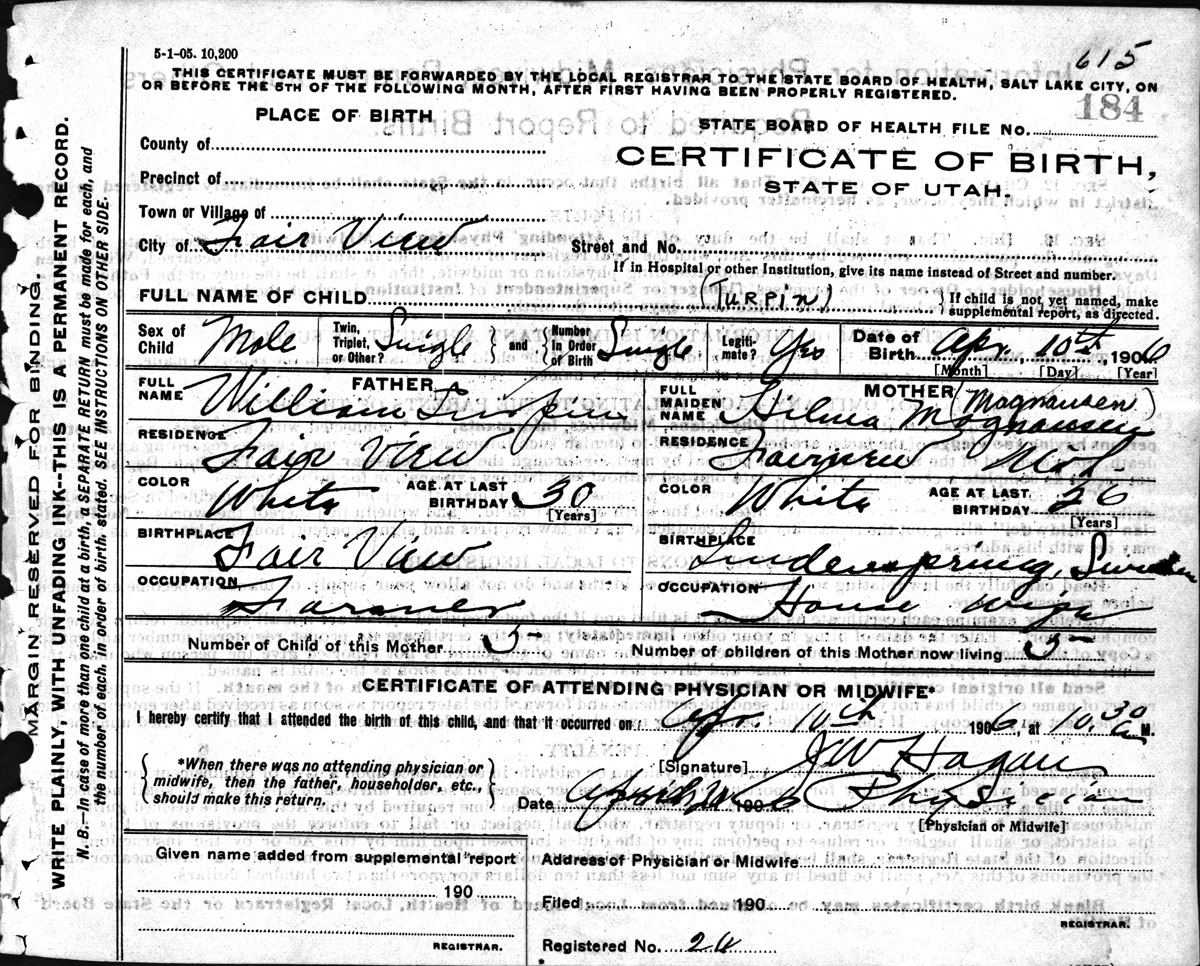 5-1-05. 10,200
615
THIS CERTIFICATE MUST BE FORWARDED BY THE LOCAL REGISTRAR TO THE STATE BOARD OF HEALTH, SALT LAKE CITY, ON
OR BEFORE THE 5TH OF THE FOLLOWING MONTH, AFTER FIRST HAVING BEEN PROPERLY REGISTERED.
184
PLACE OF BIRTH
STATE BOARD OF HEALTH FILE NO.
County of
CERTIFICATE OF BIRTH,
Precinct of
STATE OF UTAH.
Town or Village of
City of Fair View
Street and No.
If in Hospital or other Institution, give its name instead of Street and number.
FULL NAME OF CHILD (TURPIN) } If child is not yet named, make supplemental report, as directed.
Sex of Child Male Twin, Triplet, or Other? Single } and { Number in Order of Birth Single Legitimate? Yes Date of Birth Apr. 10th, 1906
[Month] [Day] [Year]
FATHER
MOTHER
FULL NAME William Turpin
FULL MAIDEN NAME Hilma M Magnausen (Magnausen)
RESIDENCE Fair View
RESIDENCE Fairview Utah
COLOR White AGE AT LAST BIRTHDAY 30 [Years]
COLOR White AGE AT LAST BIRTHDAY 26 [Years]
BIRTHPLACE Fair View
BIRTHPLACE Sweden
OCCUPATION Farmer
OCCUPATION House wife
Number of Child of this Mother 5
Number of children of this Mother now living 5
CERTIFICATE OF ATTENDING PHYSICIAN OR MIDWIFE*
I hereby certify that I attended the birth of this child, and that it occurred on Apr. 10th 1906, at 10.30 am M.
*When there was no attending physician or midwife, then the father, householder, etc., should make this return.
[Signature] J W Hagan
Date 190 Physician
[Physician or Midwife]
Given name added from supplemental report
190
REGISTRAR.
Address of Physician or Midwife
Filed 190
REGISTRAR.
Registered No. 24
MARGIN RESERVED FOR BINDING.
WRITE PLAINLY, WITH UNFADING INK--THIS IS A PERMANENT RECORD.
N. B.—In case of more than one child at a birth, a SEPARATE RETURN must be made for each, and
the number of each, in order of birth, stated. SEE INSTRUCTIONS ON OTHER SIDE.